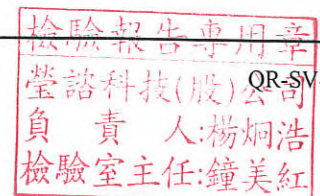 檢驗報告專用章
瑩諮科技(股)公司
QR-SV
負責人:楊炯浩
檢驗室主任:鐘美紅